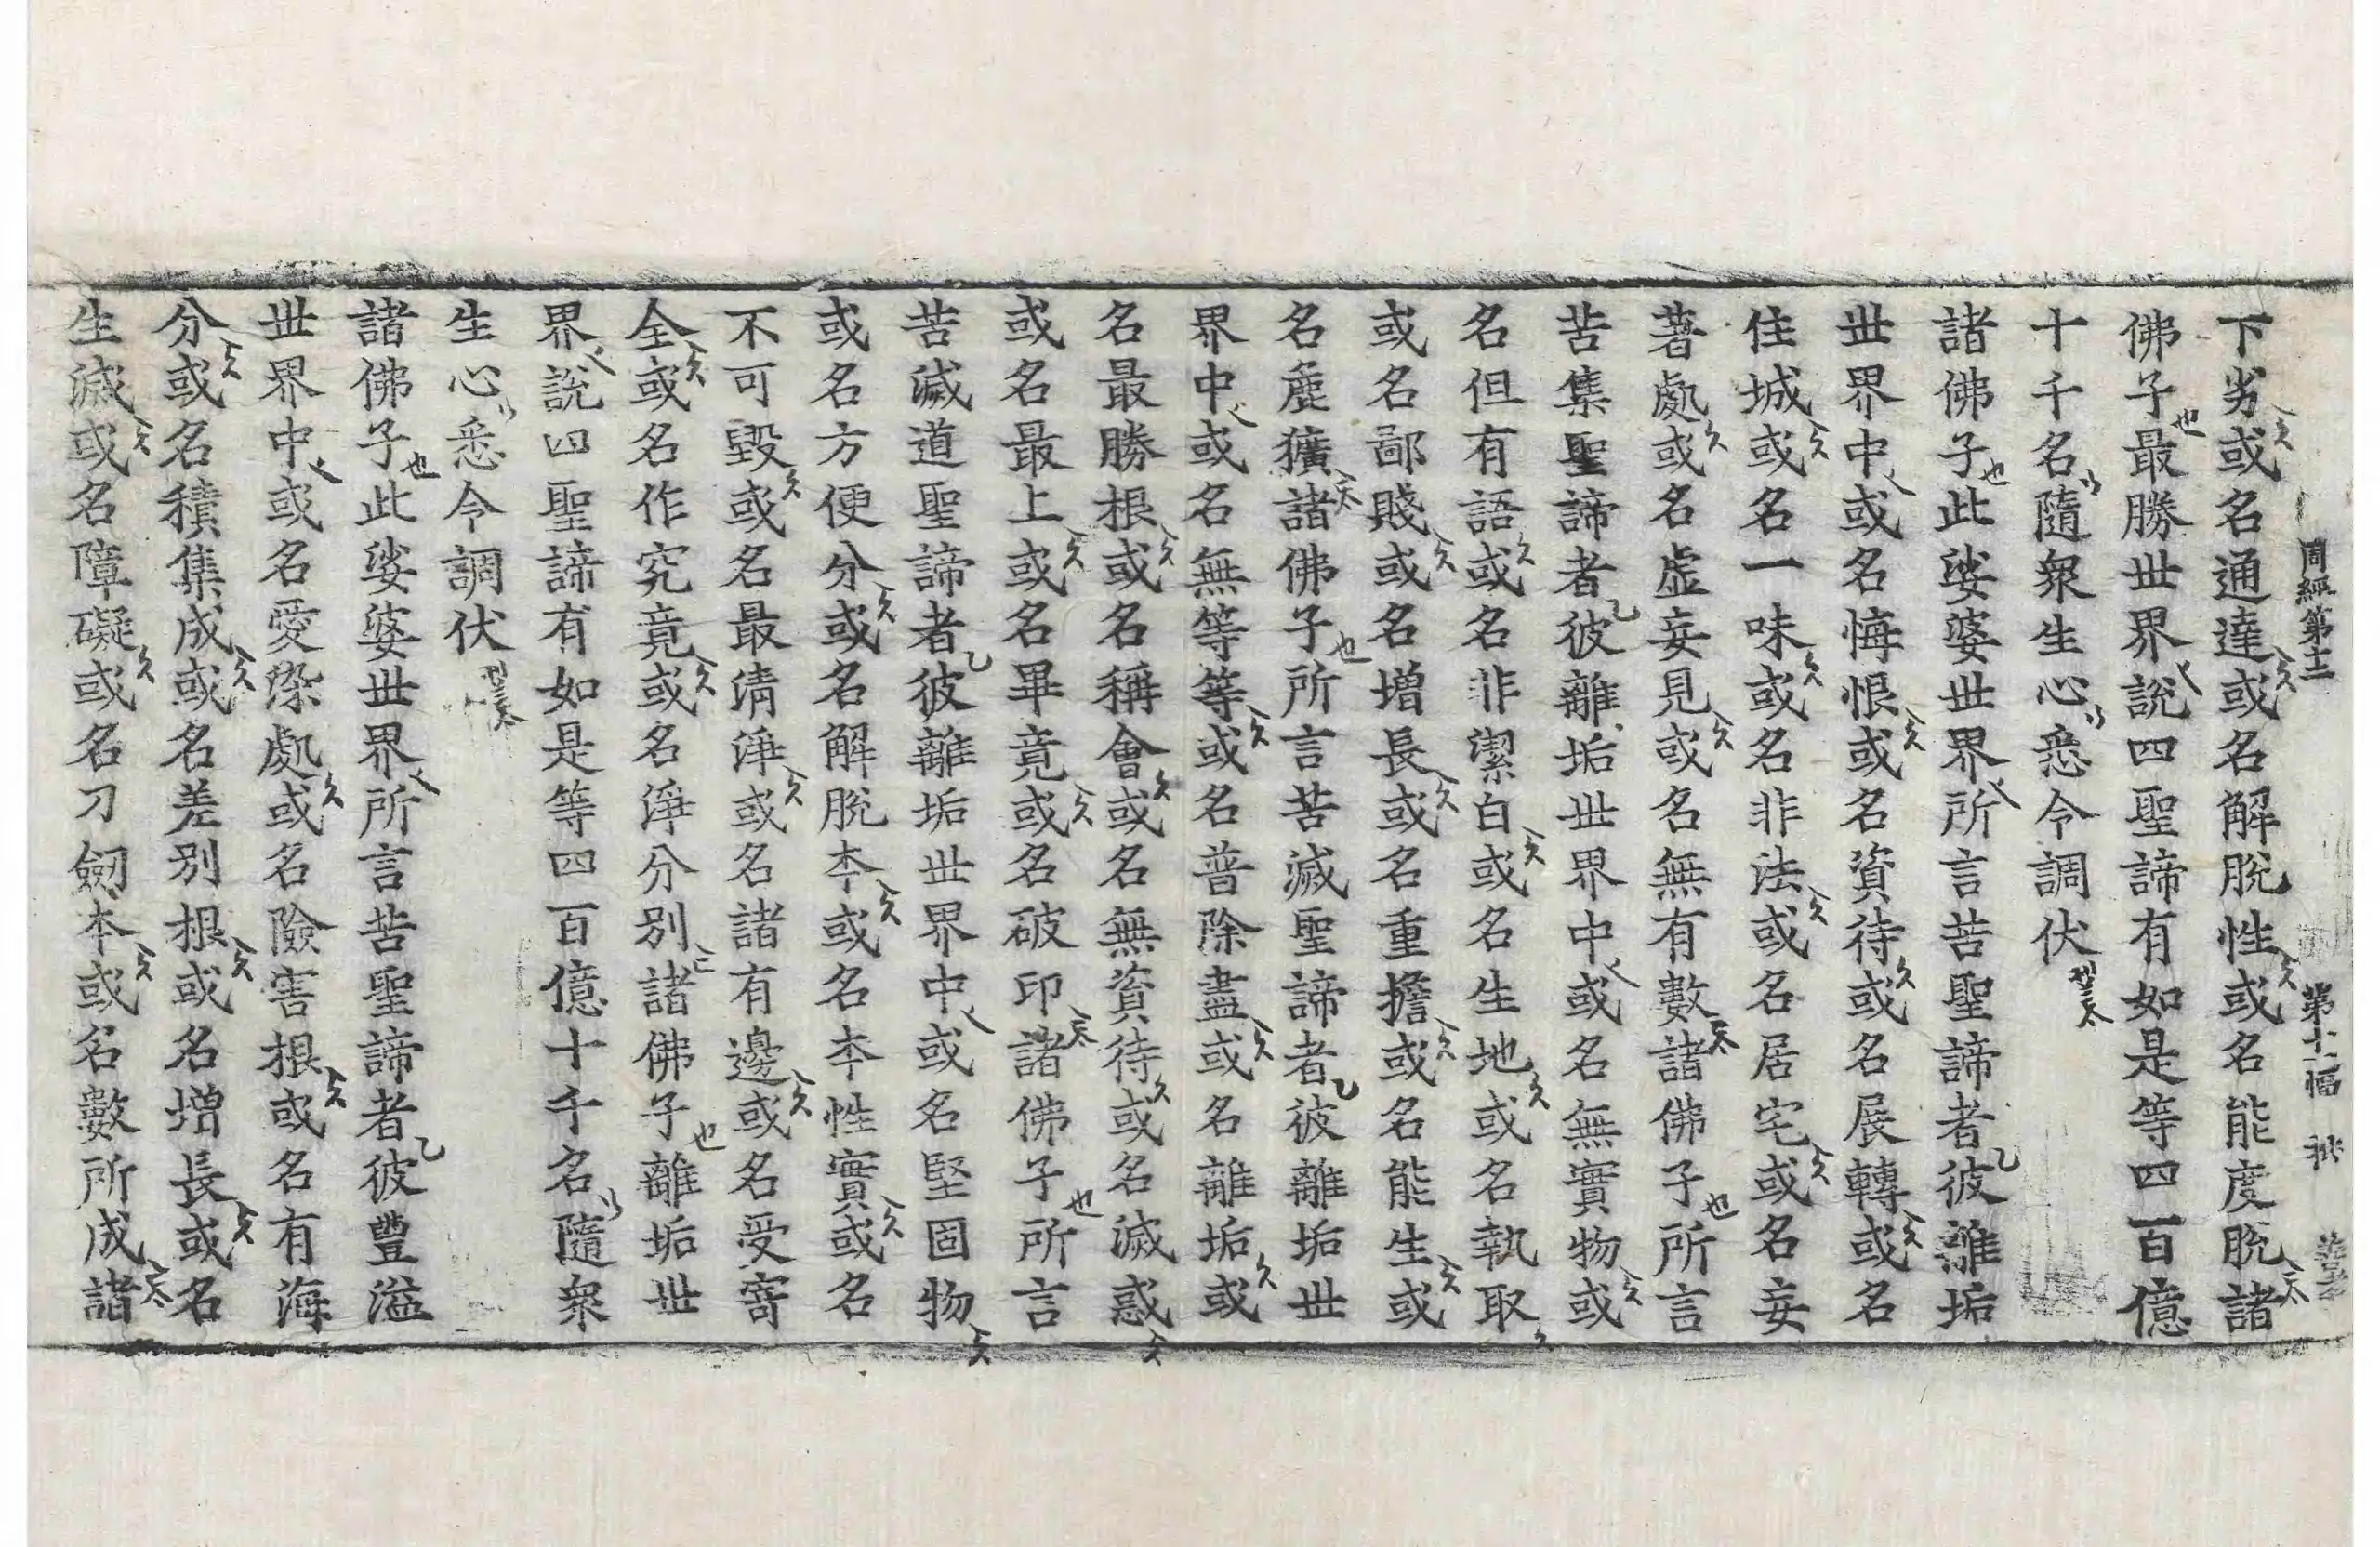 周經第十二
下劣或名通達或名解脫性或名能度脫諸
佛子最勝世界說四聖諦有如是等四百億
十千名隨衆生心悉令調伏
諸佛子此娑婆世界所言苦聖諦者彼離垢
世界中或名悔恨或名資待或名展轉或名
住城或名一味或名非法或名居宅或名妄
著處或名虛妄見或名無有數諸佛子所言
苦集聖諦者彼離垢世界中或名無實物或
名但有語或名非潔白或名生地或名執取
或名鄙賤或名增長或名重擔或名能生或
名麁獷諸佛子所言苦滅聖諦者彼離垢世
界中或名無等等或名普除盡或名離垢或
名最勝根或名稱會或名無資待或名滅惑
或名最上或名畢竟或名破印諸佛子所言
苦滅道聖諦者彼離垢世界中或名堅固物
或名方便分或名解脫本或名本性實或名
不可毀或名最清淨或名諸有邊或名受寄
全或名作究竟或名淨分別諸佛子離垢世
界說四聖諦有如是等四百億十千名隨衆
生心悉令調伏
諸佛子此娑婆世界所言苦聖諦者彼豐溢
世界中或名愛染處或名險害根或名有海
分或名積集成或名差別根或名增長或名
生滅或名障礙或名刀劒本或名數所成諸